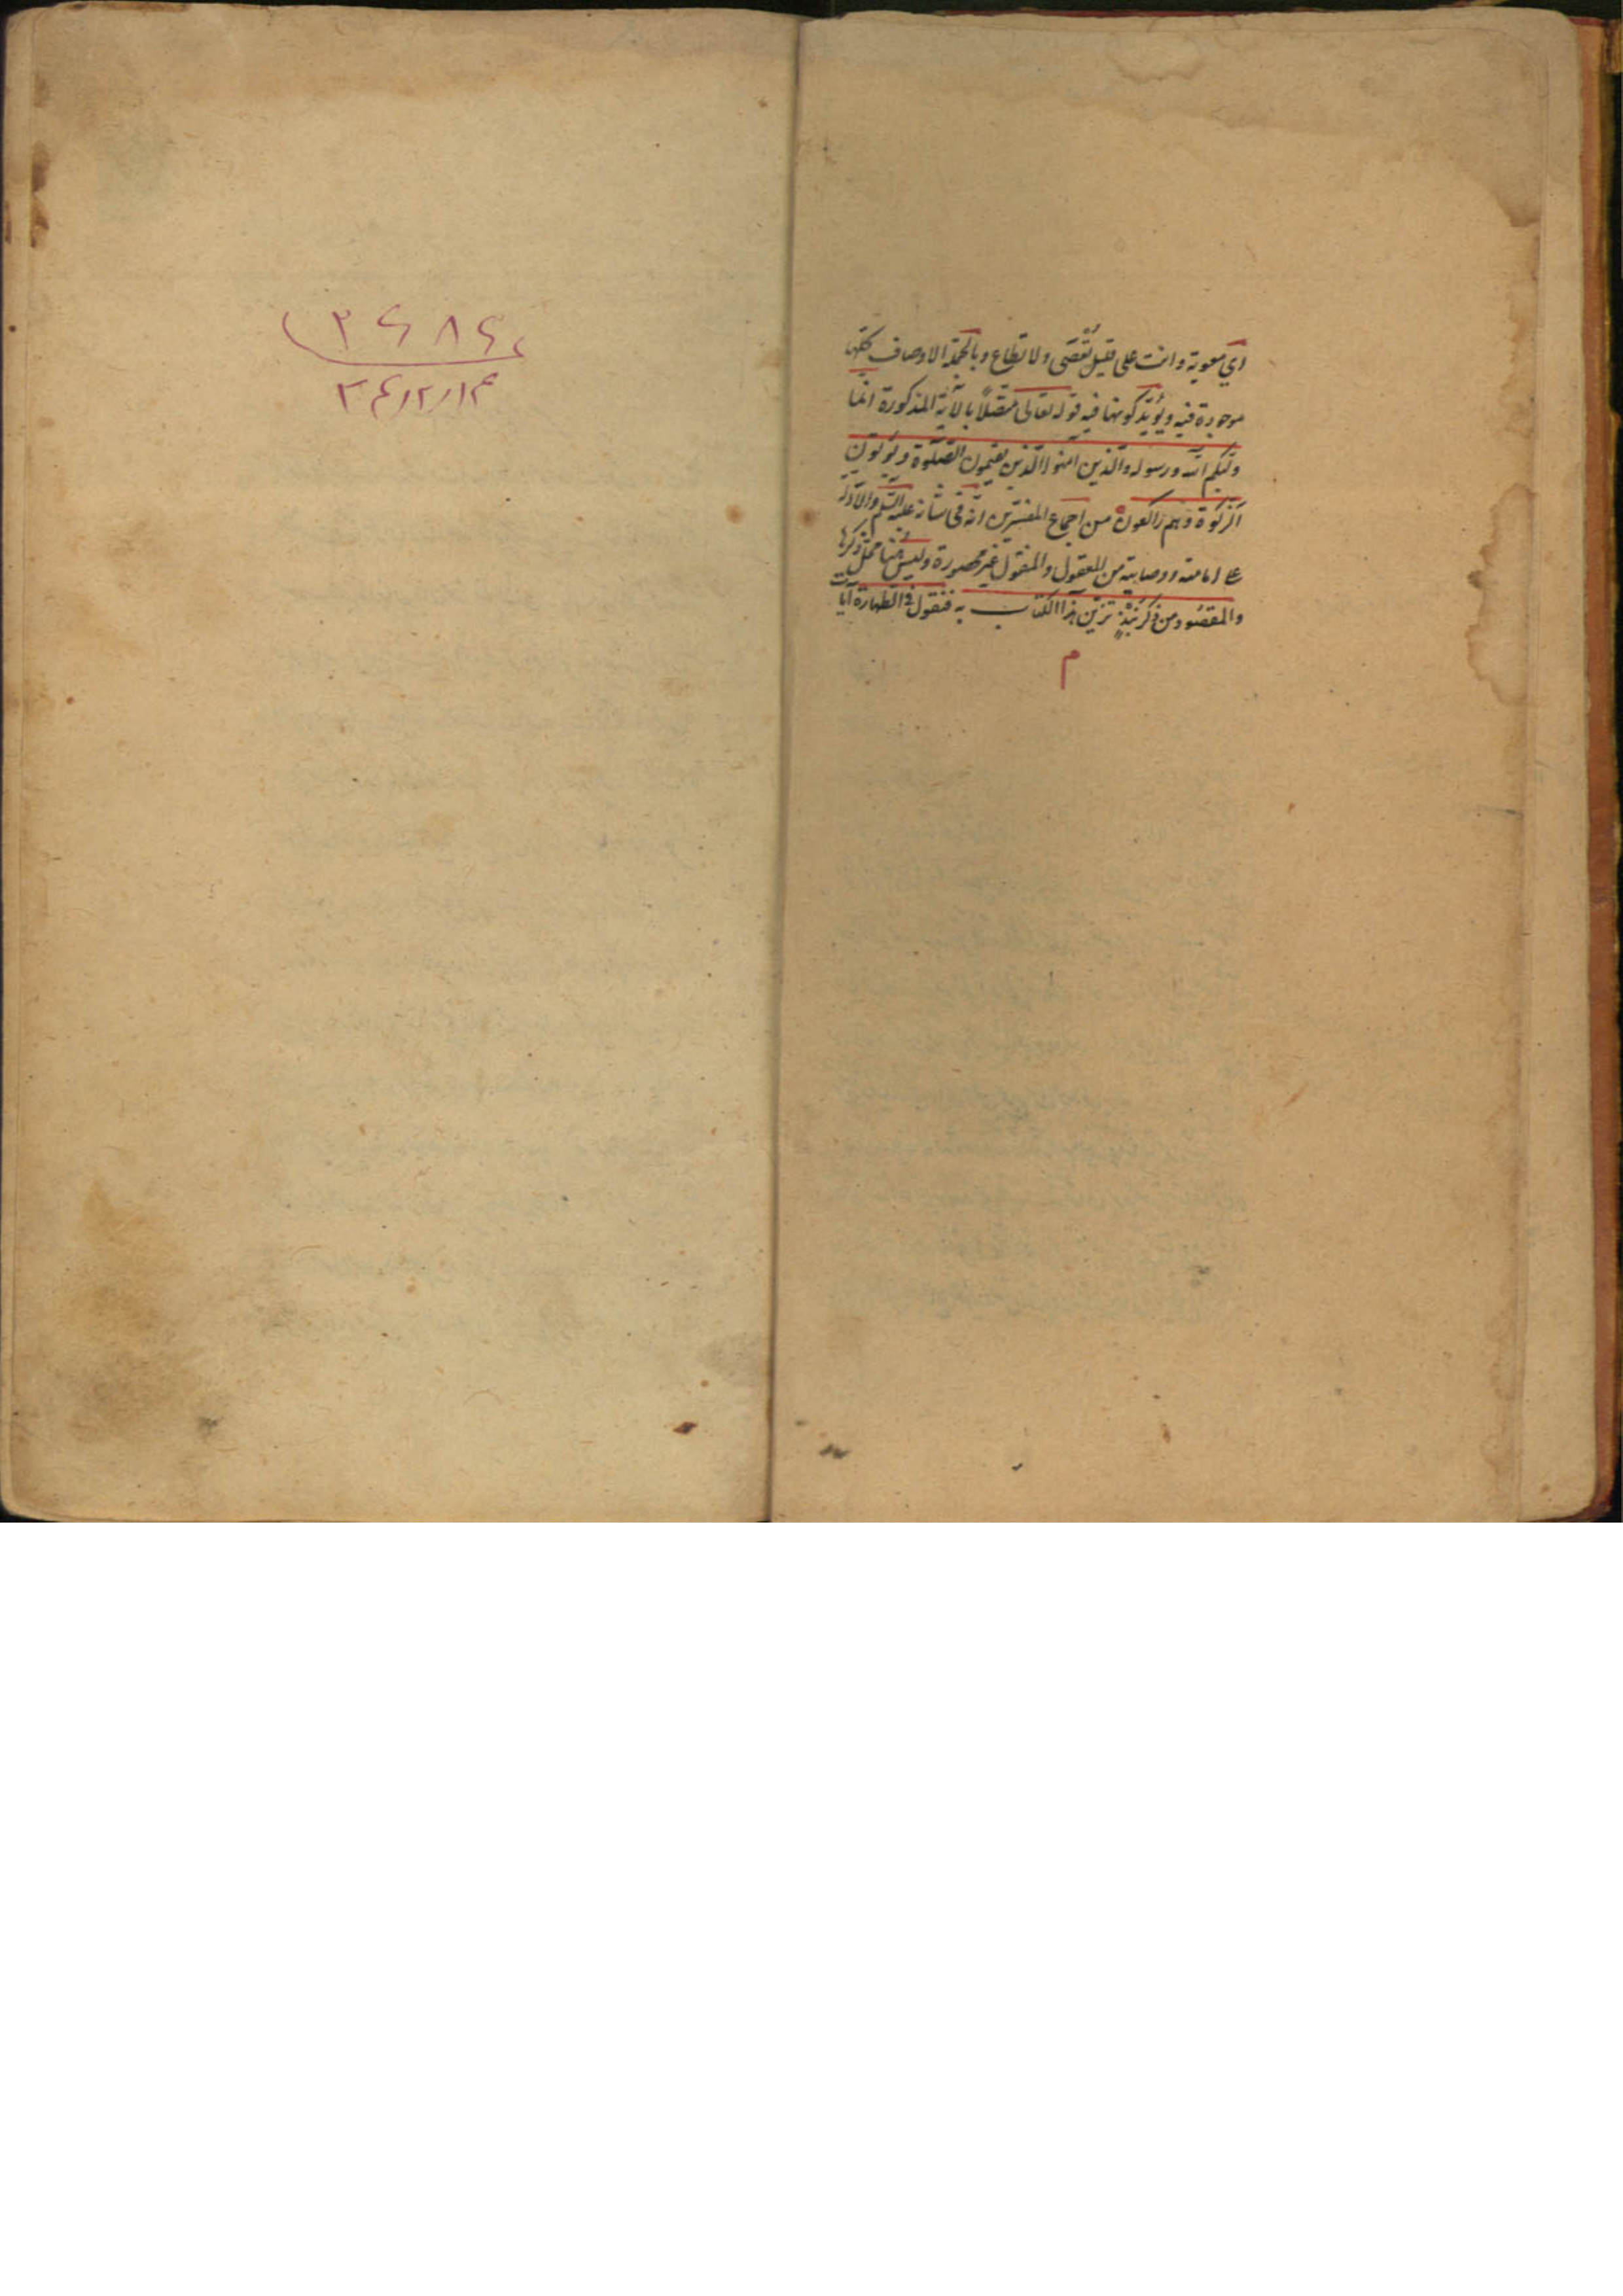 اي معوية وانت علی قليل تُعْصَی ولا تطاع وبالجملة الاوصاف كلّها
موجودة فيه ويُؤيّد كونها فيه قوله تعالی متّصلاً بالآية المذكورة انّما
وليّكم اللّه ورسوله والّذين آمنوا الّذين يقيمون الصّلوة ويؤتون
الزّكوة وهم راكعون من اجماع المفسّرين انّه فی شانه عليه السّلم والادلّة
ع امامته ووصايته من المعقول والمنقول غير محصورة وليس هنا محلّ ذكرها
والمقصود من ذكر نُبَذٍ تزيّن هذا الكتاب به فنقول فی الطّهارة آيات
م
۳۴/۲/۱۴